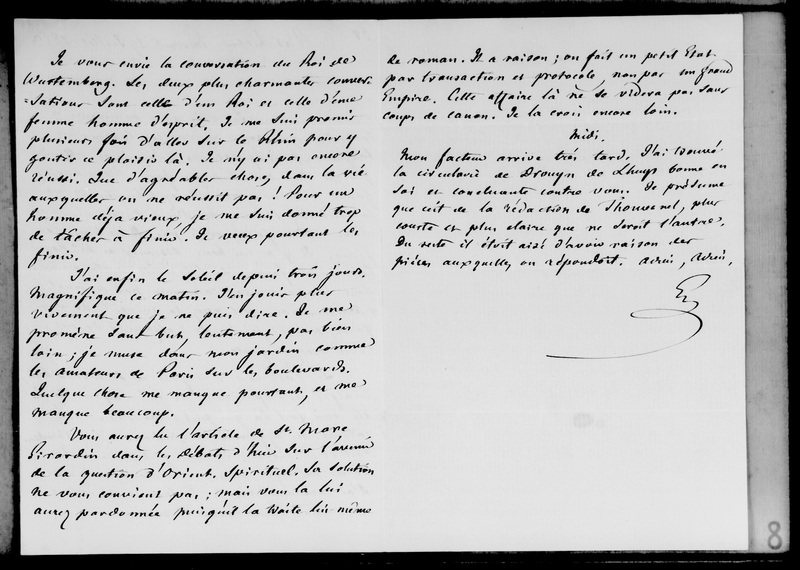 Je vous envie la conversation du Roi de
Wurtemberg. Les deux plus charmantes conver-
=sations sont celle d'un Roi et celle d'une
femme homme d'esprit. Je me suis promis
plusieurs fois d'aller sur le Rhin pour y
gouter ce plaisir là. Je n'y ai pas encore
réussi. Que d'agréables choses dans la vie
auxquelles on ne réussit pas ! Pour un
homme déja vieux, je me suis donné trop
de tâches à finir. Je veux pourtant les
finir.
J'ai enfin le Soleil depuis trois jours.
Magnifique ce matin. J'en jouis plus
vivement que je ne puis dire. Je me
promène sans but, lentement, pas bien
loin ; je muse dans mon jardin comme
les amateurs de Paris sur les boulevards.
Quelque chose me manque pourtant, et me
manque beaucoup.
Vous aurez lu l'article de St. Marc
Girardin dans les Débats d'hier sur l'avenir
de la question d'Orient. Spirituel. Sa solution
ne vous convient pas ; mais vous la lui
aurez pardonnée puisqu'il la traite lui-même
de roman. Il a raison ; on fait un petit Etat
par transaction et protocole, non pas un grand
Empire. Cette affaire là ne se videra pas sans
coups de canon. Je la crois encore loin.
Midi.
Mon facteur arrive très tard. J'ai trouvé
la circulaire de Drouyn de Lhuys bonne en
soi et concluante contre vous. Je présume
que c'est de la rédaction de Thouvenel, plus
courte et plus claire que ne seroit l'autre.
Du reste il étoit aisé d'avoir raison des
pièces auxquelles on répondoit. Adieu, Adieu.
G
8